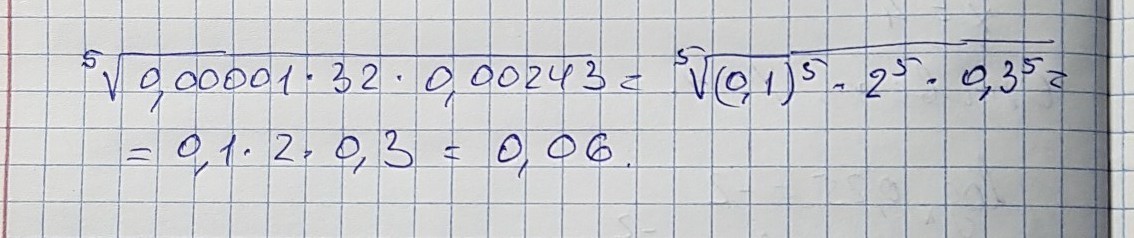 ⁵√0,00001 · 32 · 0,00243 = ⁵√(0,1)⁵ · 2⁵ · 0,3⁵ =
= 0,1 · 2 · 0,3 = 0,06.